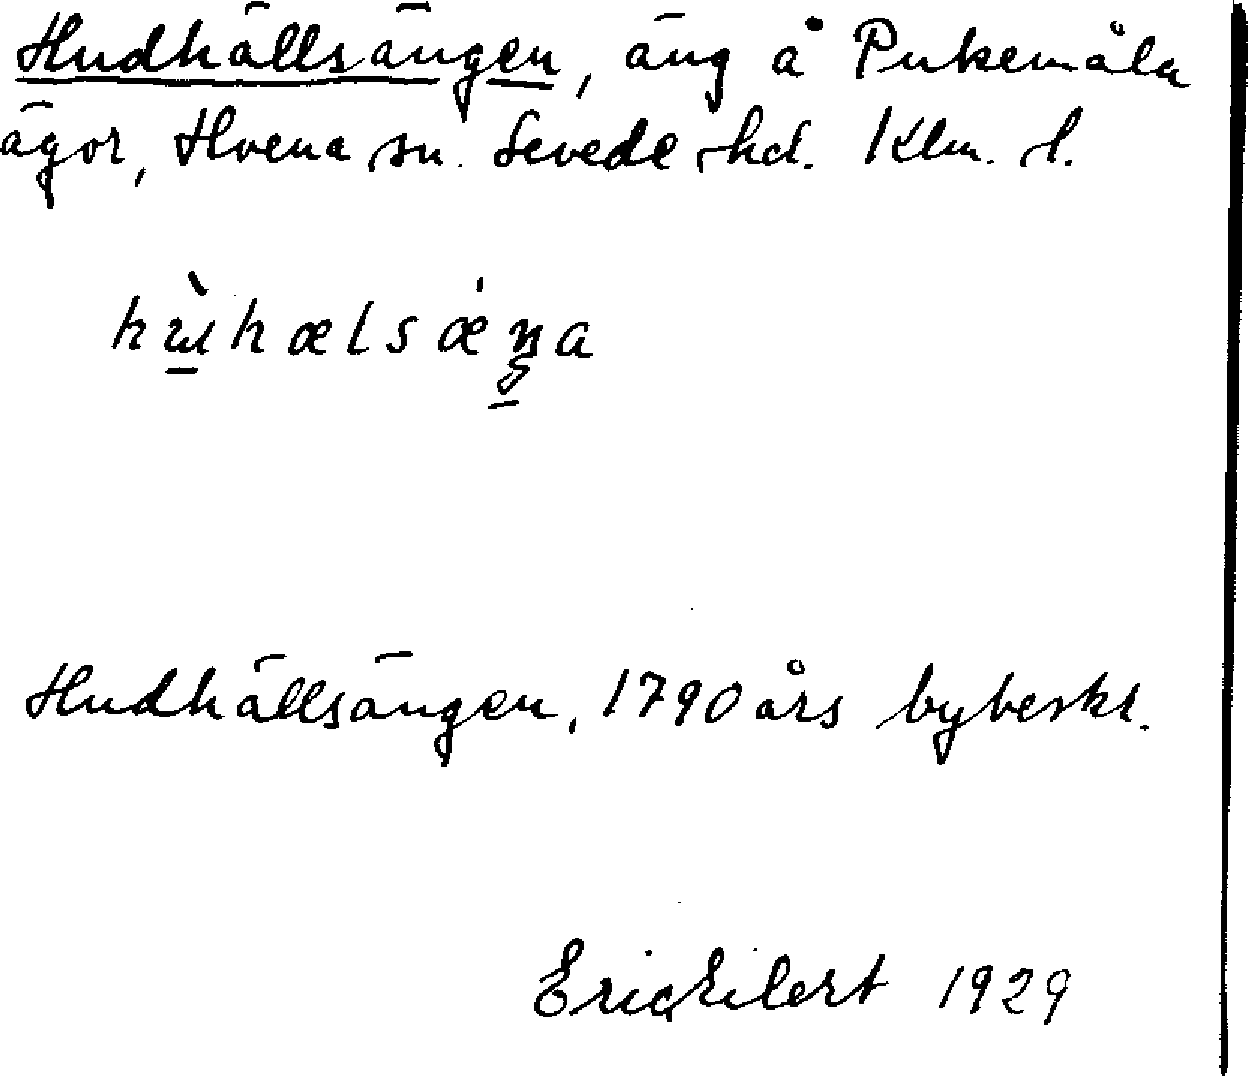 Hudhällsängen, äng å Pukemåla
ägor, Hvena sn. Sevede hd. Klm. l.
Hudhällsängen, 1790 års bybeskr.
Eric Eilert 1929